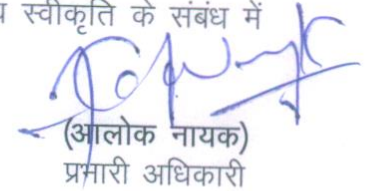 स्वीकृति के संबंध में
(आलोक नायक)
प्रभारी अधिकारी